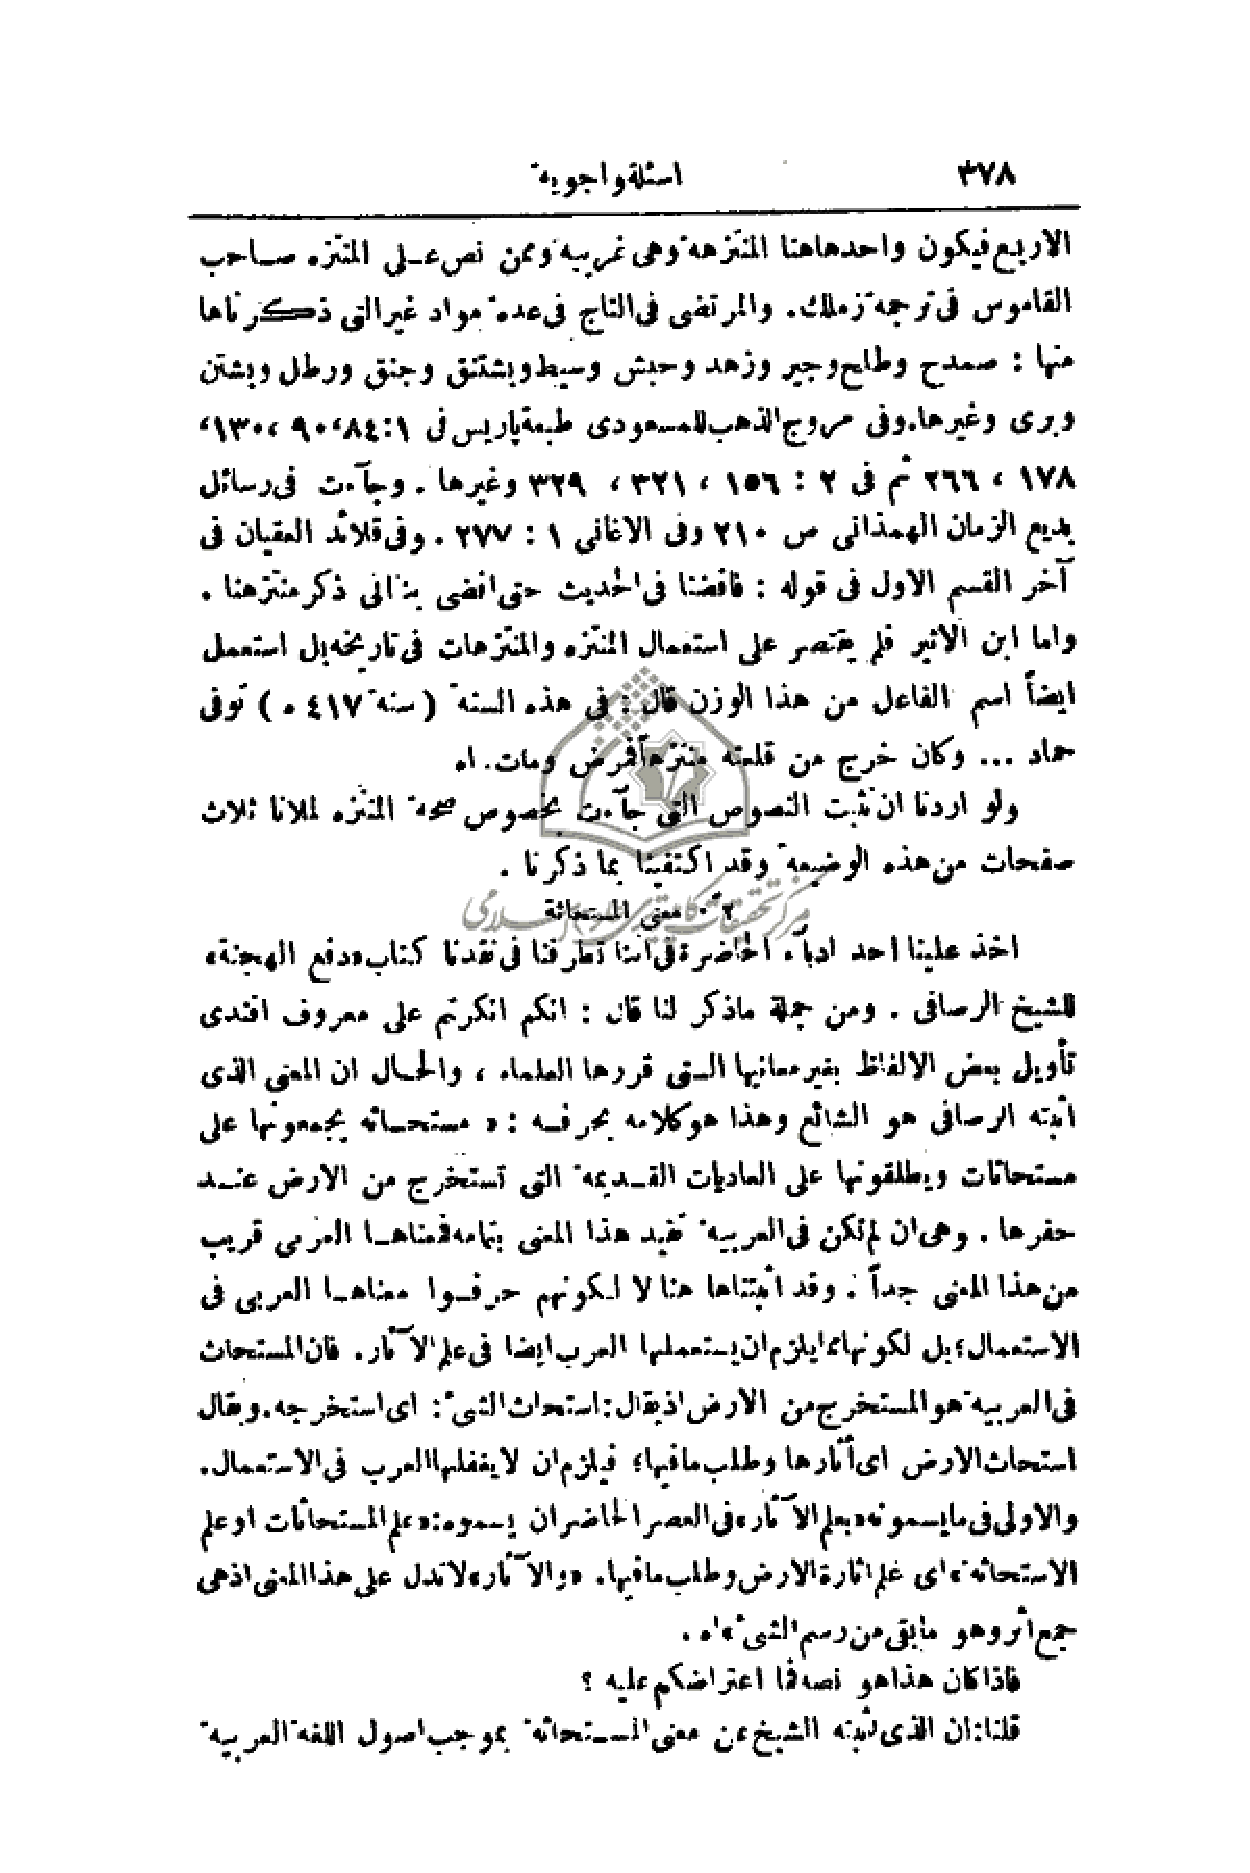 ٣٧٨ اسئلة واجوبة
الاربع فيكون واحدها هنا المنتزهة وهى غريبة وممن نص على المنتزه صاحب
القاموس فى ترجمة زملك. والمرتضى فى التاج فى عدة مواد غير التى ذكرناها
منها : صمدح وطلح وجير وزهد وحبش وسيط وبشتنق وجنق ورطل وبشتن
وبرى وغيرها. وفى مروج الذهب للمسعودى طبعة پاريس فى ١ : ٨٤، ٩٠، ١٣٠،
١٧٨ ، ٢٦٦ ثم فى ٢ : ١٥٦ ، ٣٢١ ، ٣٢٩ وغيرها . وجآءت فى رسائل
بديع الزمان الهمذانى ص ٢١٠ وفى الاغانى ١ : ٢٧٧ . وفى قلائد العقيان فى
آخر القسم الاول فى قوله : فافضنا فى الحديث حتى افضى بنا الى ذكر منتزهنا .
واما ابن الاثير فلم يقتصر على استعمال المنتزه والمنتزهات فى تاريخه بل استعمل
ايضاً اسم الفاعل من هذا الوزن قال : فى هذه السنة (سنة ٤١٧ ه) توفى
حماد ... وكان خرج من قلعته منتزهاً فمرض ومات. اه
ولو اردنا ان نثبت النصوص التى جآءت بخصوص صحة المنتزه لملانا ثلاث
صفحات من هذه الوضيعة وقد اكتفينا بما ذكرنا .
٢ً. معنى المستحاثة
اخذ علينا احد ادبآء الحاضرة فى اننا تطرفنا فى نقدنا كتاب «دفع الهجنة»
للشيخ الرصافى . ومن جملة ماذكر لنا قال : انكم انكرتم على معروف افندى
تأويل بعض الالفاظ بغير معانيها التى قررها العلماء ، والحال ان المعنى الذى
اثبته الرصافى هو الشائع وهذا هو كلامه بحرفه : « مستحاثه يجمعونها على
مستحاثات ويطلقونها على العاديات القديمة التى تستخرج من الارض عند
حفرها . وهى ان لم تكن فى العربية تفيد هذا المعنى بتمامه فمعناها العربى قريب
من هذا المعنى جداً . وقد اثبتناها هنا لا لكونهم حرفوا معناها العربى فى
الاستعمال؛ بل لكونها مما يلزم ان يستعملها العرب ايضا فى علم الآثار. فان المستحاث
فى العربية هو المستخرج من الارض اذ يقال: استحاث الشىء: اى استخرجه. ويقال
استحاث الارض اى أثارها وطلب مافيها؛ فيلزم ان لا يغفلها العرب فى الاستعمال.
والاولى فى مايسمونه «بعلم الآثار» فى العصر الحاضر ان يسموه: «علم المستحاثات او علم
الاستحاثة» اى علم اثارة الارض وطلب مافيها. «والآثار» لاتدل على هذا المعنى اذ هى
جمع أثر وهو مابقى من رسم الشىء» اه .
فاذا كان هذا هو نصه فما اعتراضكم عليه ؟
قلنا: ان الذى يثبته الشيخ عن معنى المستحاثة بموجب اصول اللغة العربية